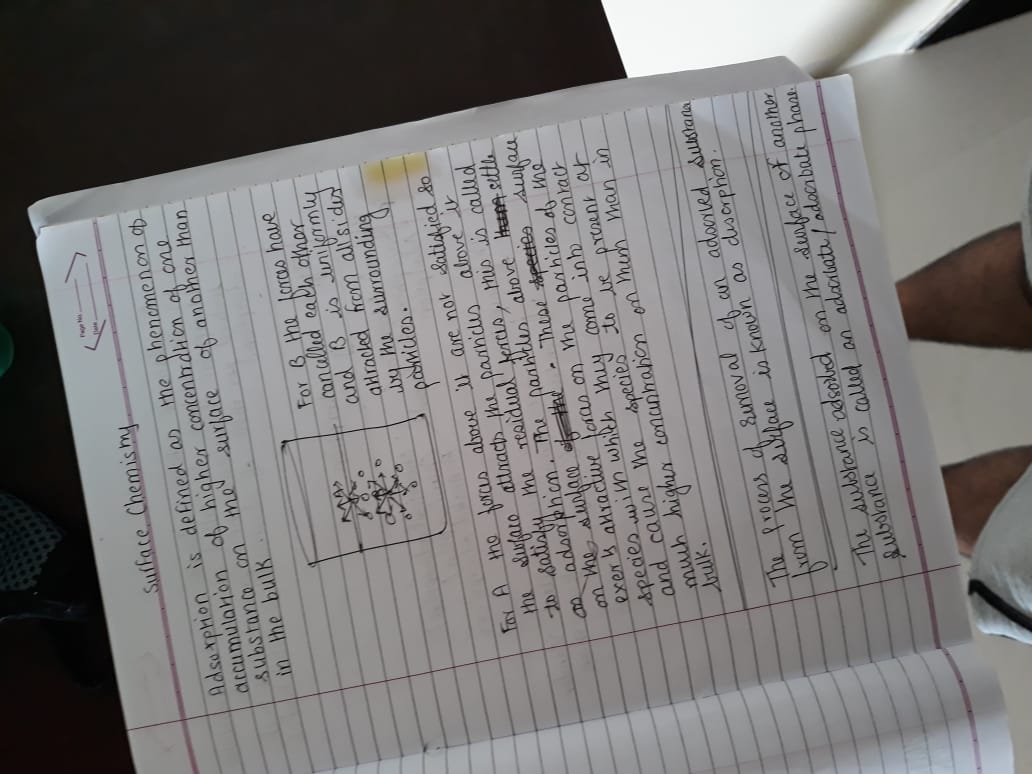 Page No.
Date
Surface Chemistry
Adsorption is defined as the phenomenon of
accumulation of higher concentration of one
substance on the surface of another than
in the bulk.
For B the forces have
cancelled each other
and B is uniformly
attracted from all sides
by the surrounding
particles.
For A the forces above it are not satisfied so
the surface attracts the particles above it
to satisfy the residual forces, this is called
adsorption. The particles above settle
on the surface. These species surface
on the attractive forces on the particles of the
exerts attractive they come into contact
species with which to be present at
and cause the species on them than in
much higher concentration
bulk.
The process of removal of an adsorbed substance
from the surface is known as desorption.
The substance adsorbed on the surface of another
substance is called an adsorbate / adsorbate phase.